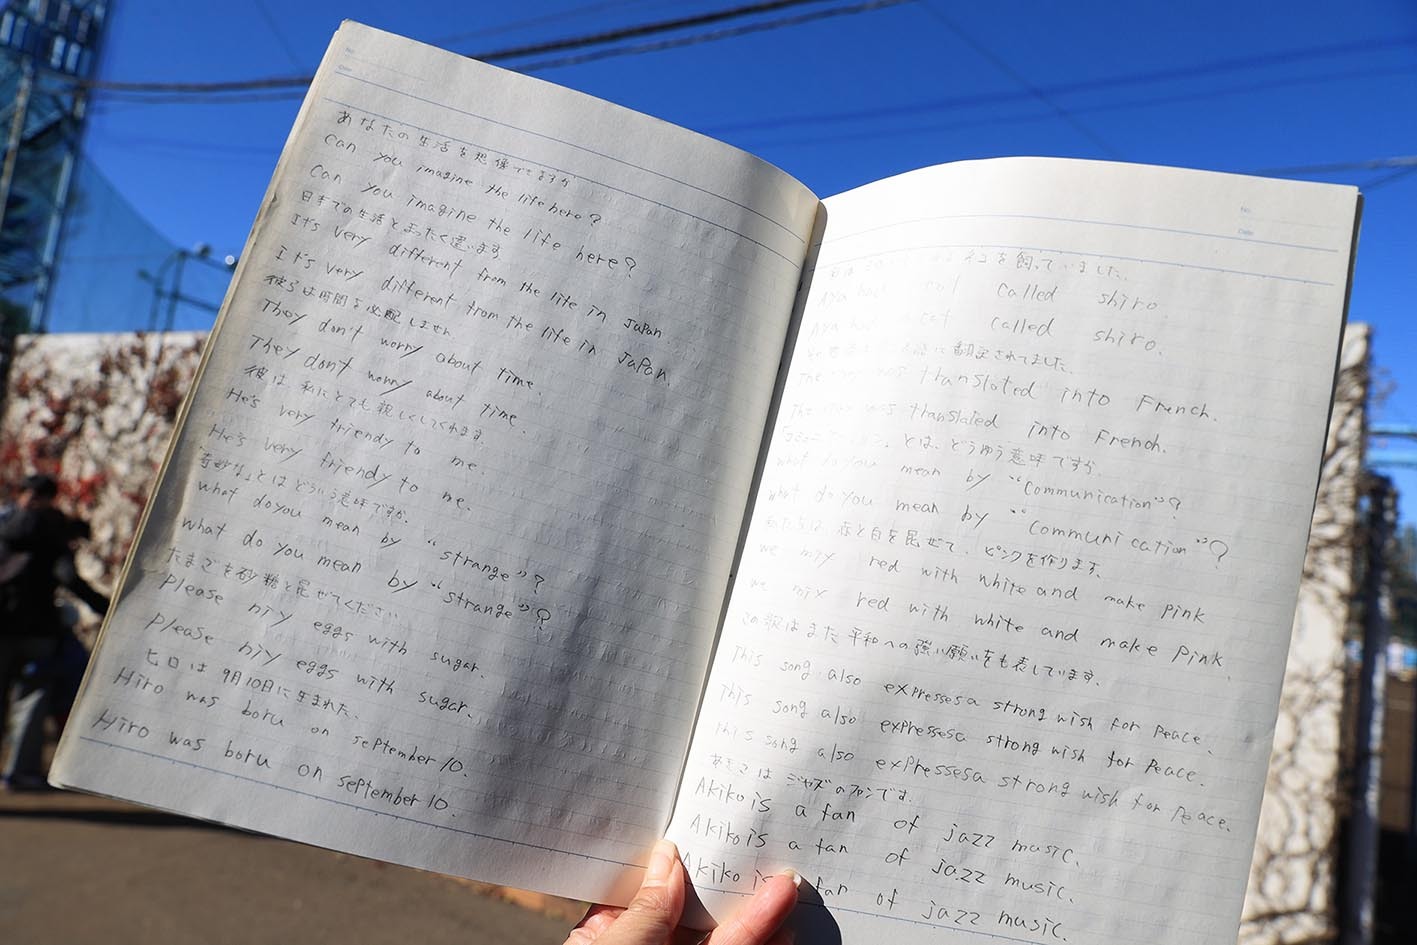 No.
Date
あなたの生活を想像できますか
Can you imagine the life here?
Can you imagine the life here?
日本での生活とまったく違います
It's very different from the life in Japan
It's very different from the life in Japan.
彼らは時間を心配しません
They don't worry about time.
They don't worry about time.
彼は私にとても親しくしてくれます。
He's very friendy to me.
He's very friendy to me.
奇妙な」とはどういう意味ですか。
what do you mean by "strange"?
what do you mean by "strange"?
たまごを砂糖と混ぜてください
Please miy eggs with sugar.
Please miy eggs with sugar.
ヒロは9月10日に生まれた。
Hiro was boru on september 10.
Hiro was boru on september 10.
No.
Date
ネコを飼っていました。
Aya had cat called shiro.
Aya had cat called shiro.
語に翻訳されてました。
The was translated into French.
The was translated into French.
とは、どうゆう意味ですか
what do you mean by "Communication"?
what do you mean by "Communication"?
私たちは、赤と白を混ぜて、ピンクを作ります。
we mix red with white and make pink
we mix red with white and make pink.
この歌はまた平和への強い願いをも表しています。
This song also expressesa strong wish for peace.
This song also expressesa strong wish for peace.
This song also expressesa strong wish for peace.
あきこはジャズのファンです。
Akiko is a fan of jazz music.
Akiko is a fan of jazz music.
Akiko is fan of jazz music.